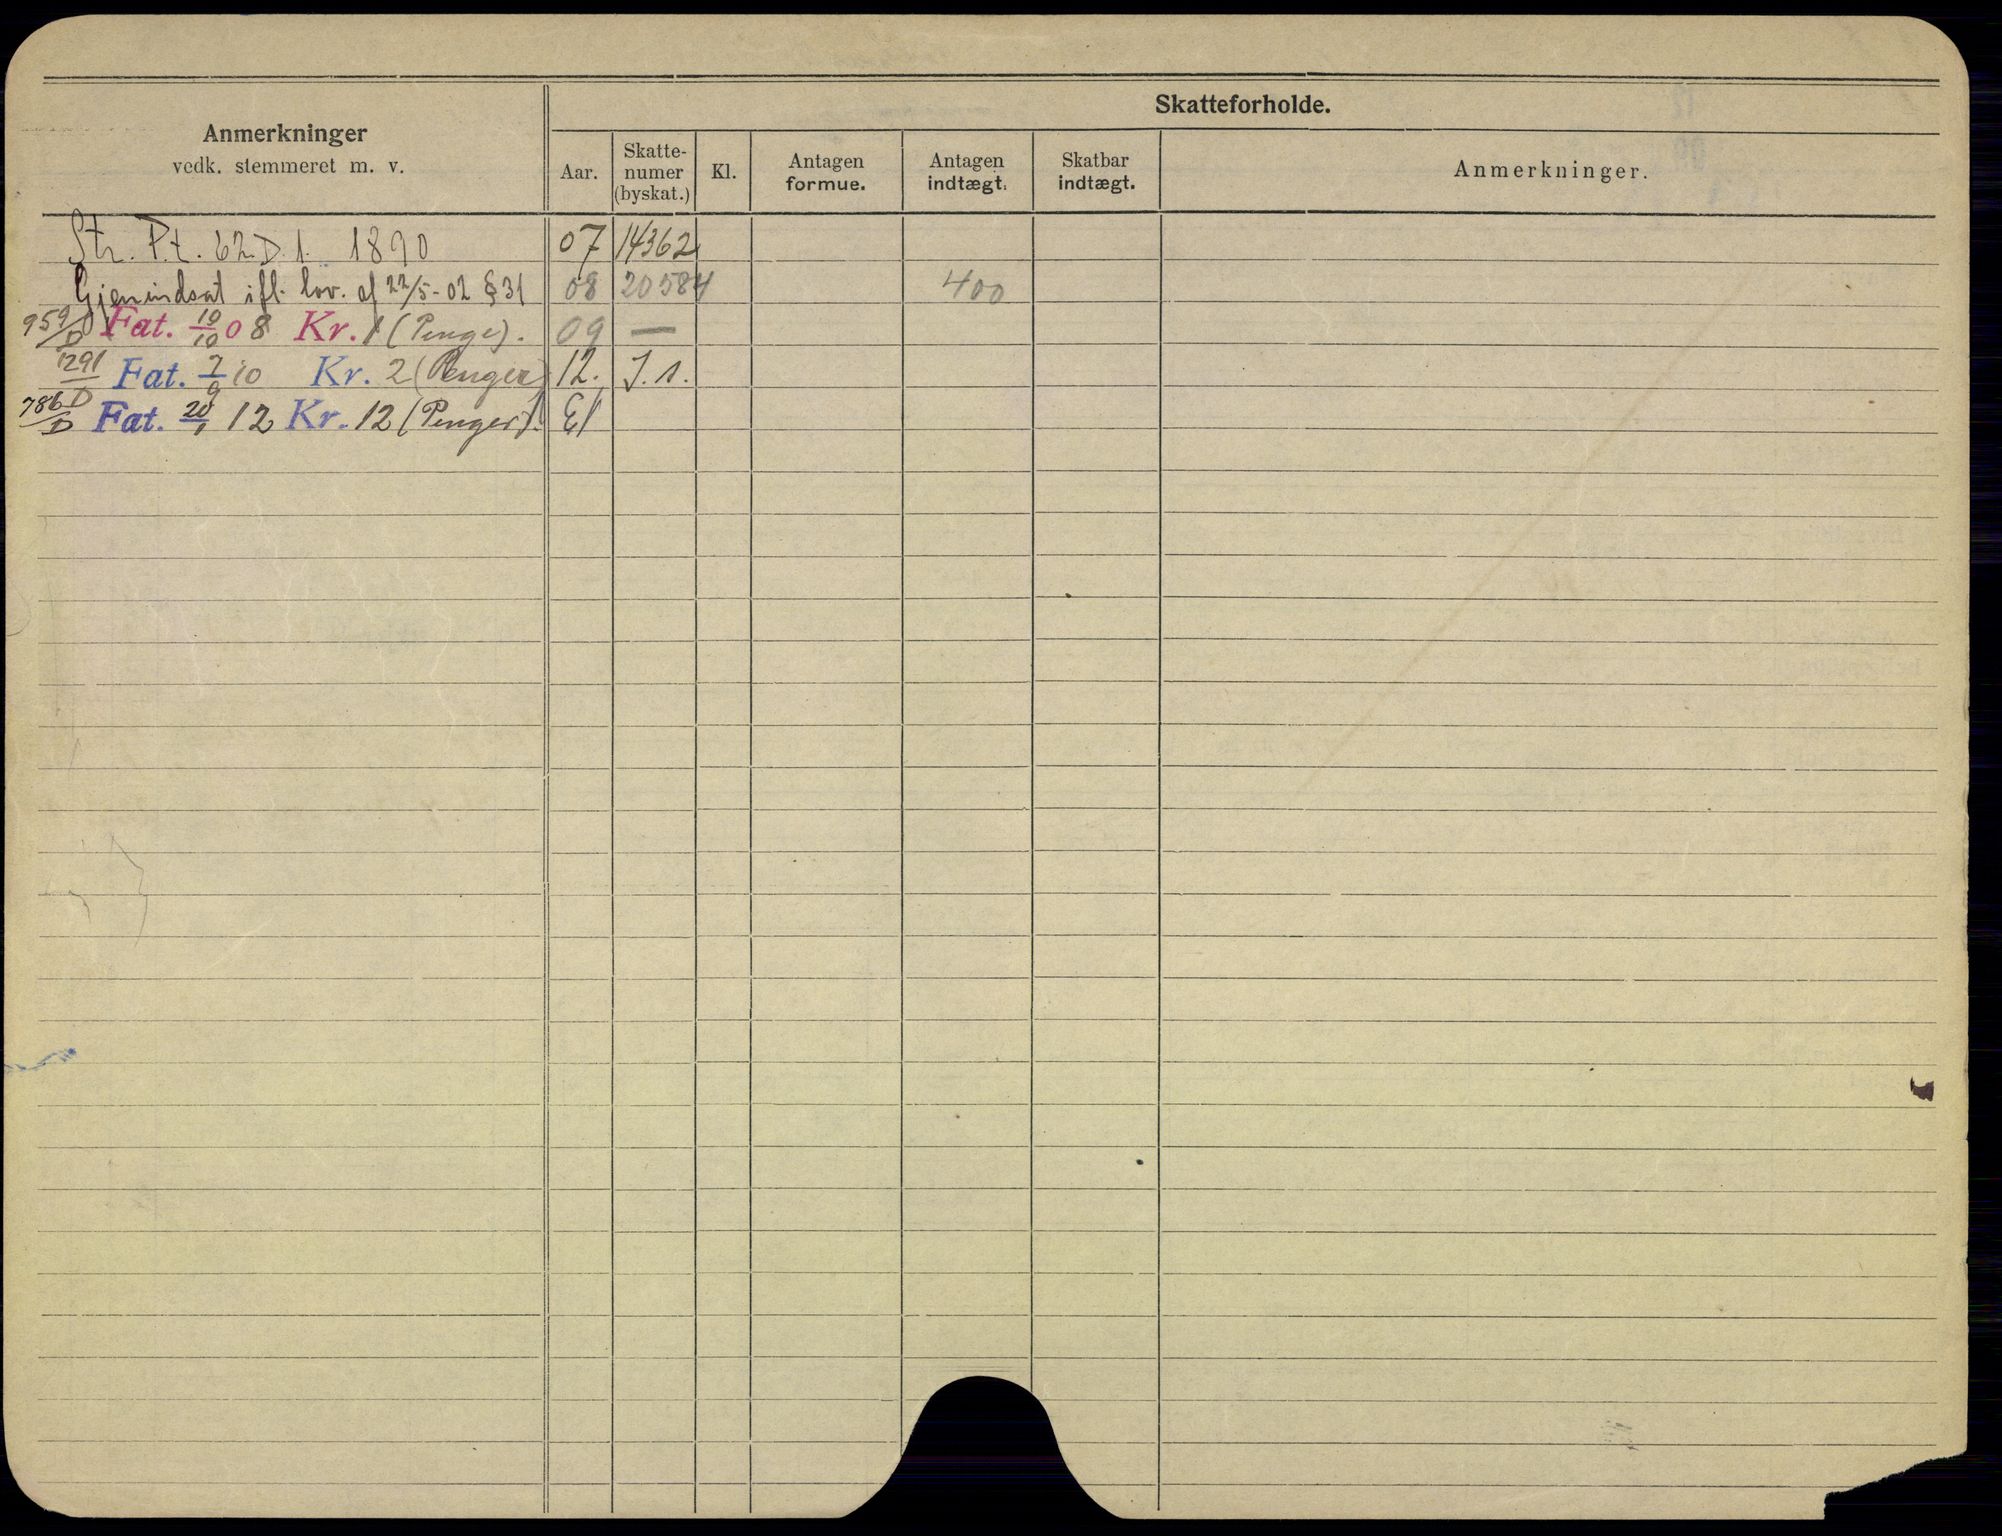 Skatteforholde.
Anmerkninger
vedk. stemmeret m. v.
Aar.
Skatte-
numer
(byskat.)
Kl.
Antagen
formue.
Antagen
indtægt.
Skatbar
indtægt.
Anmerkninger.
Str. P.t. 62 D. 1. 1890 07 14362
Gjenindsat ifl. lov. af 22/5-02 § 31 08 20584 400
959/D Fat. 10/10 08 Kr. 1 (Penge). 09 —
1291/D Fat. 7/9 10 Kr. 2 (Penger) 12. J. s.
786/D Fat. 20/1 12 Kr. 12 (Penger). El